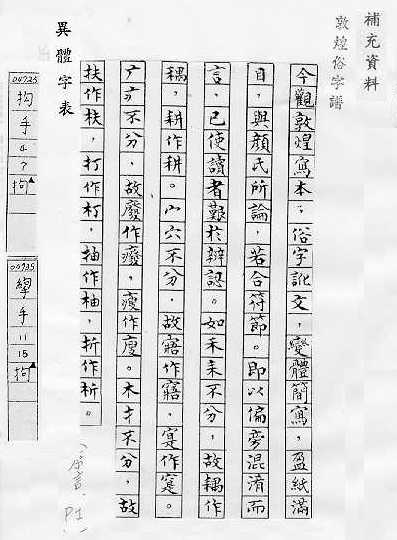 補充資料
敦煌俗字譜
今觀敦煌寫本，俗字訛文，變體簡寫，盈紙滿
目，與顏氏所論，若合符節。即以偏旁混淆而
言，已使讀者艱於辨認。如未耒不分，故耦作
耦，耕作耕。宀穴不分，故寤作寤，寔作寔。
广疒不分，故廢作癈，瘦作廋。木扌不分，故
扶作枎，打作朾，抽作柚，折作析。
（序言，P1）
異體字表
04725 手 4 7 拘
04735 手 11 15 拘